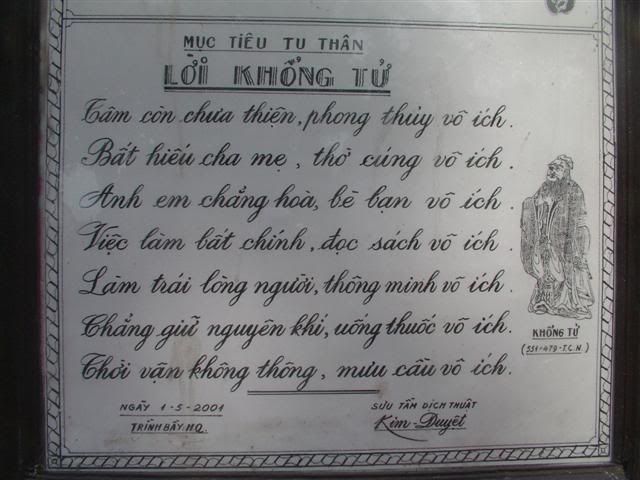 MỤC TIÊU TU THÂN
LỜI KHỔNG TỬ
Tâm còn chưa thiện, phong thủy vô ích.
Bất hiếu cha mẹ, thờ cúng vô ích.
Anh em chẳng hoà, bè bạn vô ích.
Việc làm bất chính, đọc sách vô ích.
Làm trái lòng người, thông minh vô ích.
Chẳng giữ nguyên khí, uống thuốc vô ích.
Thời vận không thông, mưu cầu vô ích.
KHỔNG TỬ
(551-479-T.C.N.)
NGÀY 1-5-2001
TRÌNH BẦY H.Q.
SƯU TẦM DỊCH THUẬT
Kim-Duyệt